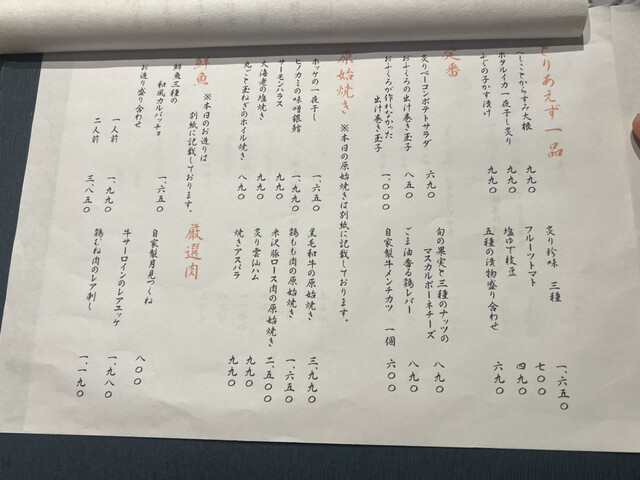 とりあえず一品
へしことからすみ大根 九九〇
ホタルイカ一夜干し炙り 九九〇
ふぐの子かす漬け 九九〇
炙り珍味 三種 一、六五〇
フルーツトマト 七〇〇
塩ゆで枝豆 四九〇
五種の漬物盛り合わせ 六九〇
定番
炙りベーコンポテトサラダ 六九〇
おふくろの出汁巻き玉子 八五〇
おふくろが作れなかった
出汁巻き玉子 一、〇〇〇
旬の果実と三種のナッツの
マスカルポーネチーズ 八九〇
ごま油香る鶏レバー 八九〇
自家製牛メンチカツ 一個 六〇〇
原始焼き ※本日の原始焼きは別紙に記載しております。
ホッケの一夜干し 一、六五〇
ヒノカミの味噌銀鱈 一、九九〇
サーモンハラス 九九〇
大海老の塩焼き 九九〇
丸ごと玉ねぎのホイル焼き 八九〇
黒毛和牛の原始焼き 三、九九〇
鶏もも肉の原始焼き 一、六五〇
米沢豚ロース肉の原始焼き 二、五〇〇
炙り雲仙ハム 九九〇
焼きアスパラ 九九〇
鮮魚
※本日のお造りは
別紙に記載しております。
鮮魚三種の
和風カルパッチョ 一、六五〇
お造り盛り合わせ
一人前 一、九九〇
二人前 三、八五〇
厳選肉
自家製月見つくね 八〇〇
牛サーロインのレアユッケ 一、九八〇
鶏むね肉のレア刺し 一、一九〇